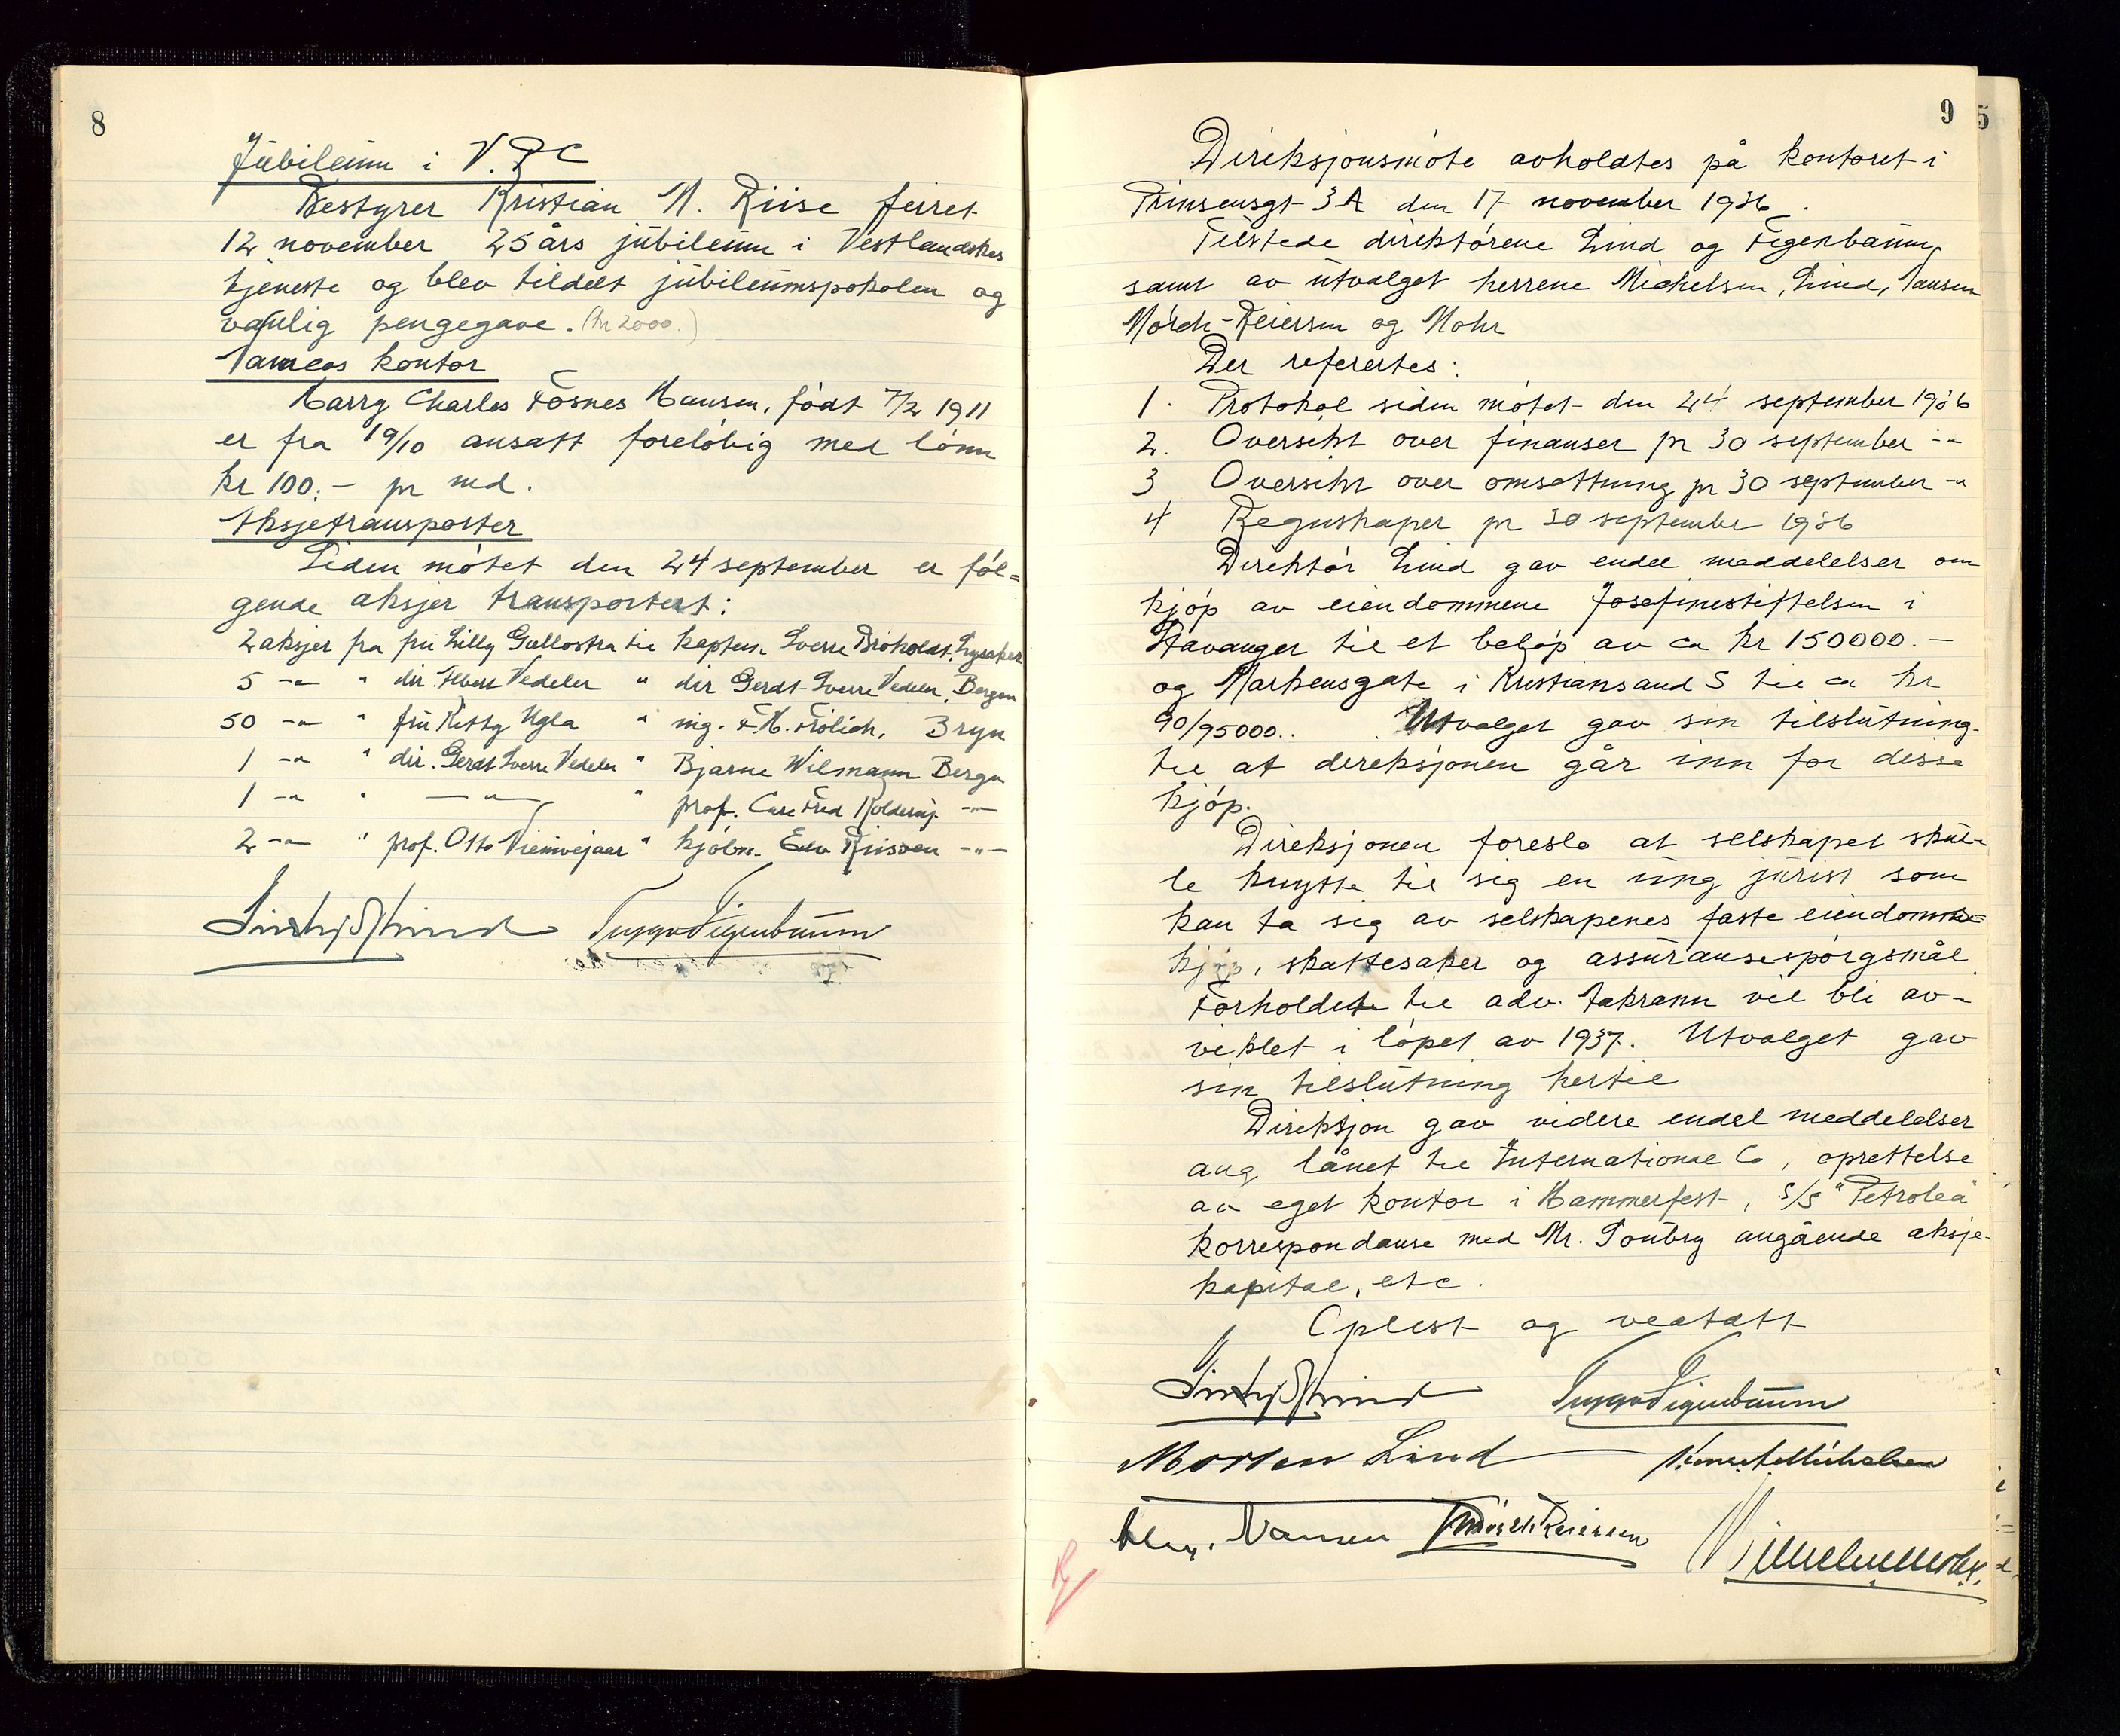 8
Jubileum i V.P.C
Bestyrer Kristian M. Riise feiret
12 november 25 års jubileum i Vestlandskes
tjeneste og blev tildelt jubileumspokalen og
vanlig pengegave. (kr 2000.)
Vamcos kontor
Harry Charles Fosnes Hansen, født 7/2 1911
er fra 19/10 ansatt foreløbig med lønn
kr 100.- pr md.
Aksjetransporter
Siden møtet den 24 september er føl=
gende aksjer transportert:
2 aksjer fra fru Lilly Gullostra til kaptein Sverre Broholdt, Lysaker
5 -"- " dir. Albert Vedeler " dir Gerdt Sverre Vedeler, Bergen
50 -"- " fru Kitty Ugla " ing. F.H. Frölich, Bryn
1 -"- " dir. Gerdt Sverre Vedeler " Bjarne Wilmann Bergen
1 -"- " -"- " prof. Carl Fred Kolderup -"-
2 -"- " prof. Otto " kjøbm. Edv Riisøen -"-
Tryggve Figenbaum
9
5
Direksjonsmøte avholdtes på kontoret i
Prinsensgt 3A den 17 november 1936.
Tilstede direktørene Lind og Figenbaum
samt av utvalget herrene Michelsen, Lind, Nansen
Mørch-Reiersen og Mohr
Der refertes:
1. Protokol siden møtet den 24 september 1936
2. Oversikt over finanser pr 30 september -"-
3 Oversikt over omsetning pr 30 september -"-
4 Regnskaper pr 30 september 1936
Direktør Lind gav endel meddelelser om
kjøp av eiendommene Josefinestiftelsen i
Stavanger til et beløp av ca kr 150000.-
og Markensgate i Kristiansand S til ca kr
90/95000.. Utvalget gav sin tilslutning
til at direksjonen går inn for desse
kjøp.
Direksjonen foreslo at selskapet skul-
le knytte til sig en ung jurist som
kan ta sig av selskapenes faste eiendoms=
kjøp, skattesaker og assuransespørgsmål
Forholdet til adv. Takrann vil bli av-
viklet i løpet av 1937. Utvalget gav
sin tilslutning hertil
Direksjon gav videre endel meddelelser
ang lånet til Internationale Co, oprettelse
av eget kontor i Hammerfest, S/S "Petrolea"
korrespondanse med Mr. angående aksje-
kapital, etc.
Oplest og vedtatt
Tryggve Figenbaum
Morten Lind
Michelsen
Nansen Mørch Reiersen
Vilhelm Mohr